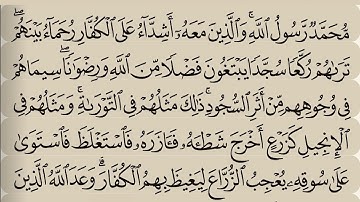 مُّحَمَّدٌ رَّسُولُ ٱللَّهِ ۚ وَٱلَّذِينَ مَعَهُۥٓ أَشِدَّآءُ عَلَى ٱلْكُفَّارِ رُحَمَآءُ بَيْنَهُمْ ۖ
تَرَىٰهُمْ رُكَّعًا سُجَّدًا يَبْتَغُونَ فَضْلًا مِّنَ ٱللَّهِ وَرِضْوَٰنًا ۖ سِيمَاهُمْ
فِى وُجُوهِهِم مِّنْ أَثَرِ ٱلسُّجُودِ ۚ ذَٰلِكَ مَثَلُهُمْ فِى ٱلتَّوْرَىٰةِ ۚ وَمَثَلُهُمْ فِى
ٱلْإِنجِيلِ كَزَرْعٍ أَخْرَجَ شَطْـَٔهُۥ فَـَٔازَرَهُۥ فَٱسْتَغْلَظَ فَٱسْتَوَىٰ
عَلَىٰ سُوقِهِۦ يُعْجِبُ ٱلزُّرَّاعَ لِيَغِيظَ بِهِمُ ٱلْكُفَّارَ ۗ وَعَدَ ٱللَّهُ ٱلَّذِينَ